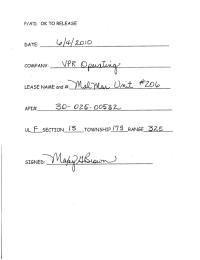 P/A'D. OK TO RELEASE
DATE: 6/4/2010
COMPANY: VPR Operating
LEASE NAME and #: MalMar Unit #206
API#: 30-025-00532
UL F SECTION 13 TOWNSHIP 17S RANGE 32E
SIGNED: Mary G Brown